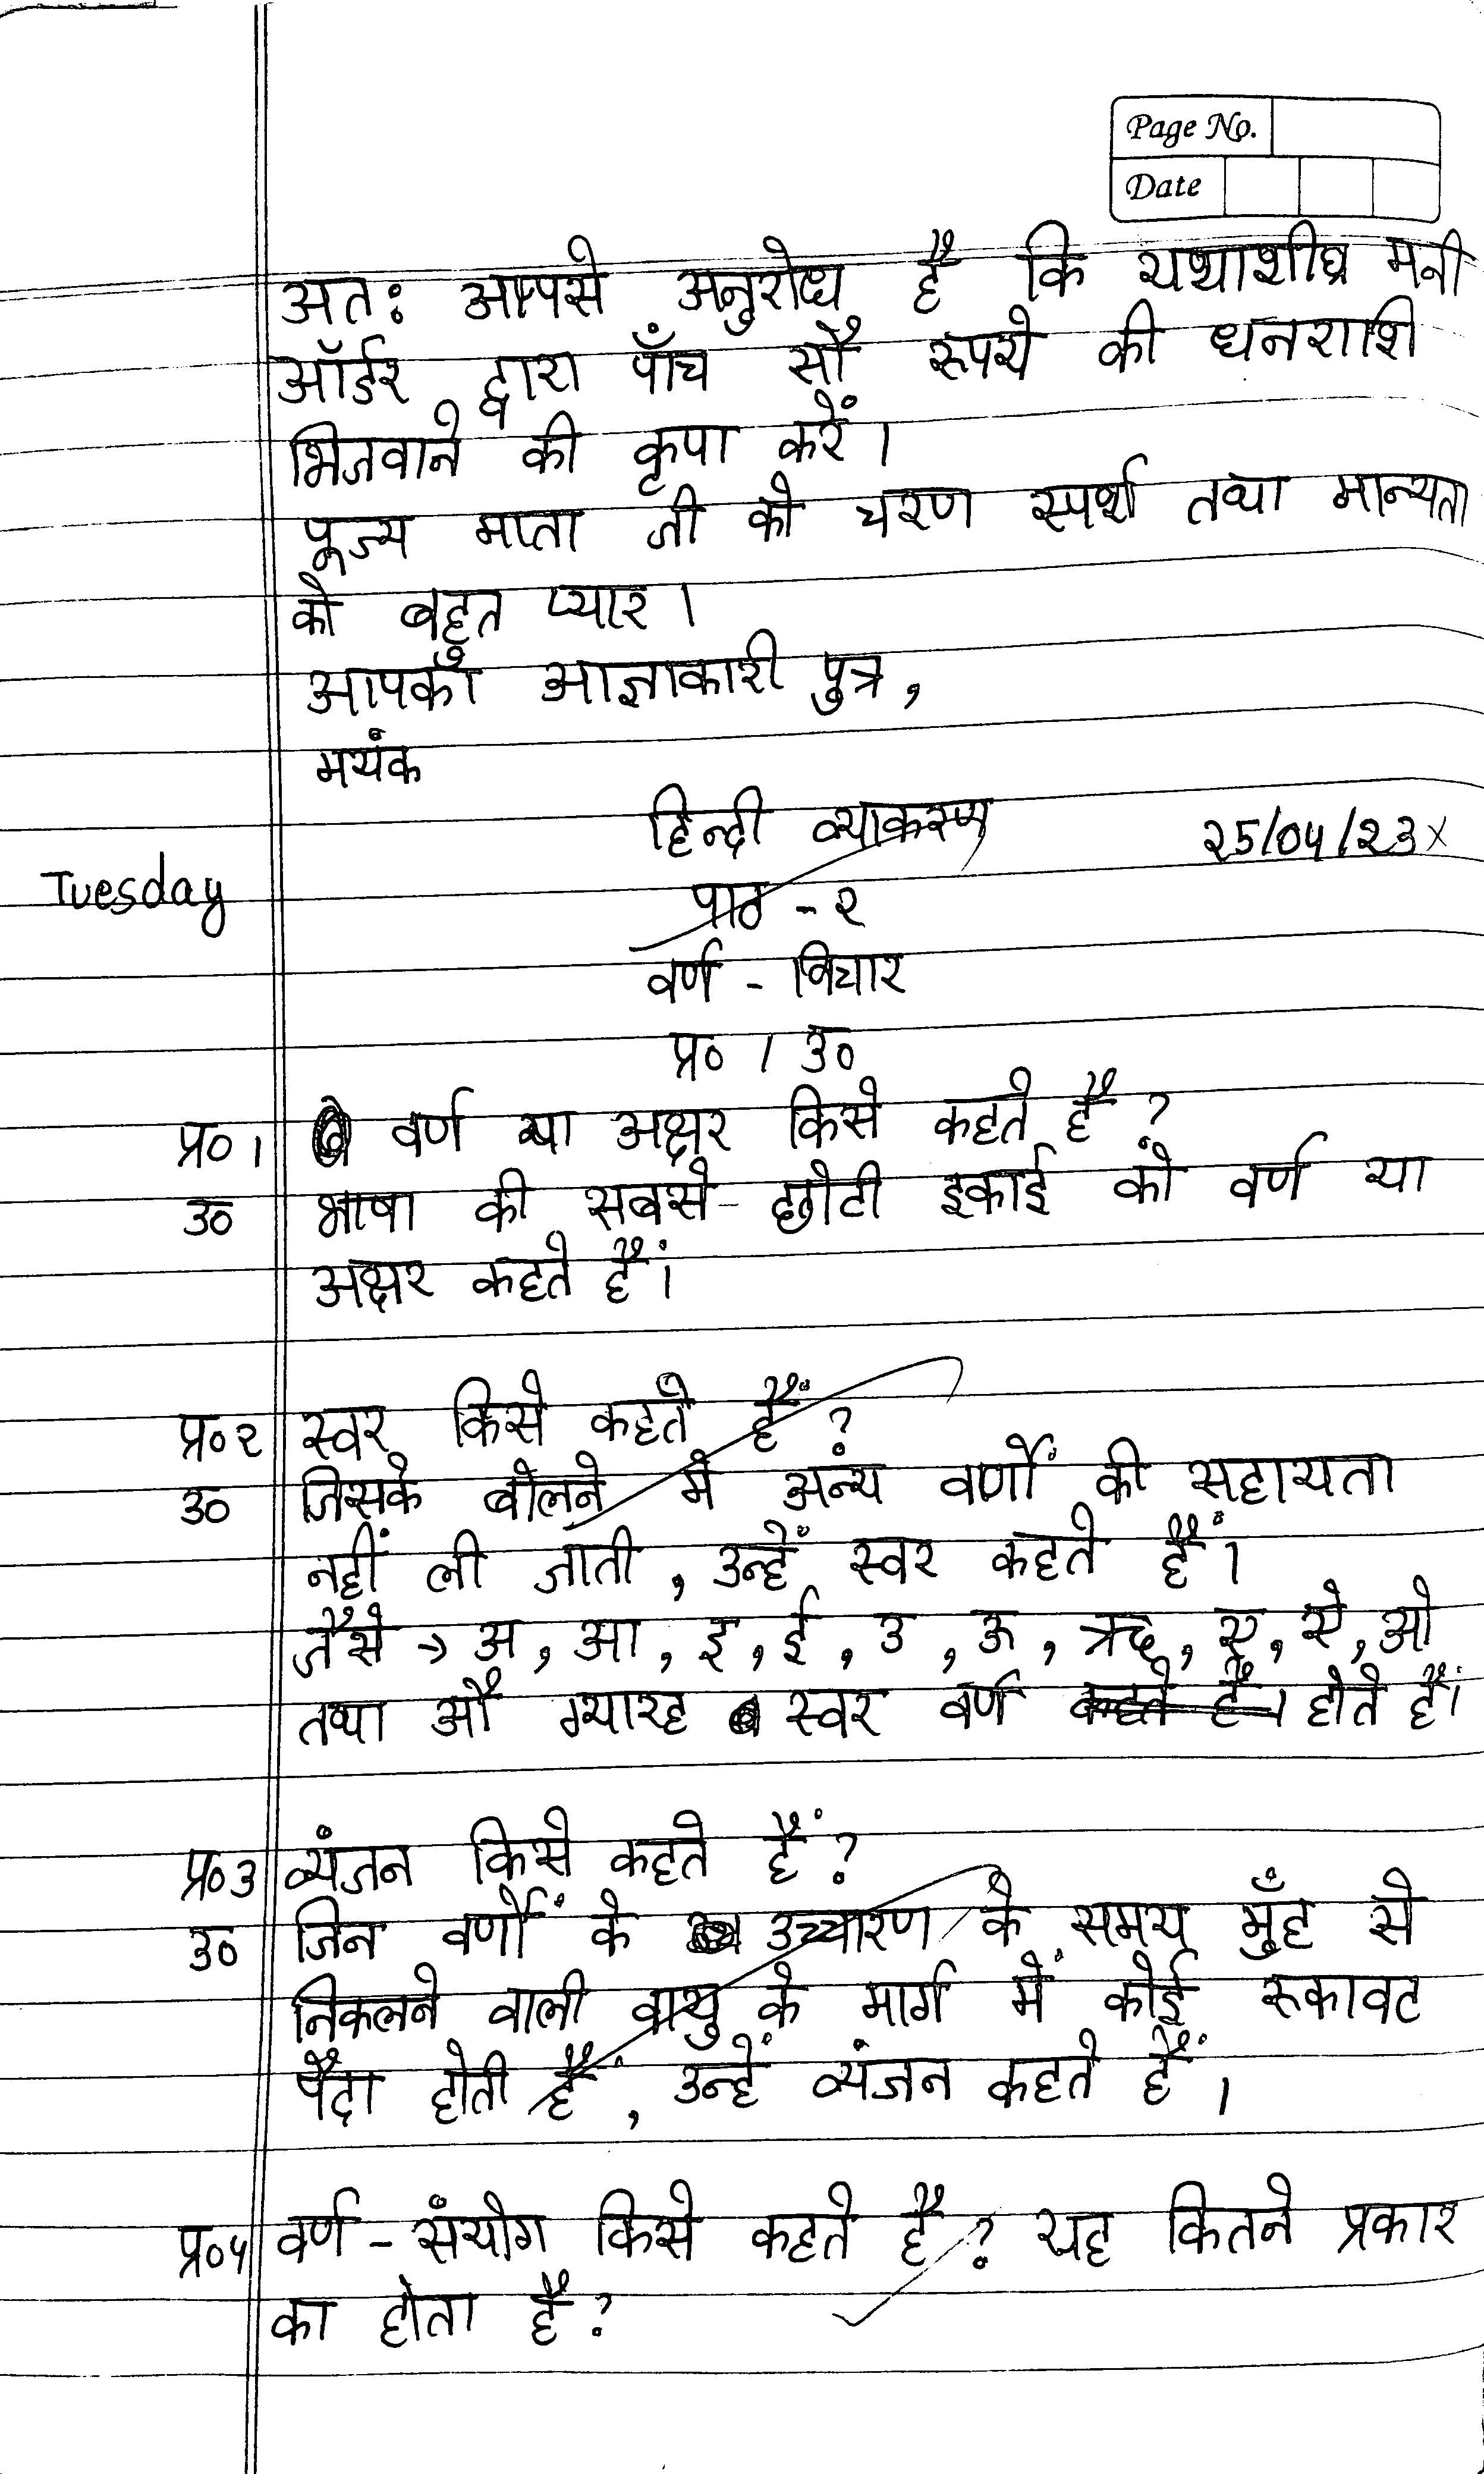 Page No.
Date
अतः आपसे अनुरोध है कि यथाशीघ्र मनी
ऑर्डर द्वारा पाँच सौ रूपये की धनराशि
भिजवाने की कृपा करें।
पूज्य माता जी को चरण स्पर्श तथा मान्यता
को बहुत प्यार।
आपका आज्ञाकारी पुत्र,
मयंक
हिन्दी व्याकरण 25/04/23
Tuesday
पाठ - २
वर्ण - विचार
प्र० / उ०
प्र० 1 वर्ण या अक्षर किसे कहते है?
उ० भाषा की सबसे छोटी इकाई को वर्ण या
अक्षर कहते हैं।
प्र०२ स्वर किसे कहते हैं?
उ० जिसके बोलने में अन्य वर्णों की सहायता
नहीं ली जाती, उन्हें स्वर कहते हैं।
जैसे → अ, आ, इ, ई, उ, ऊ, ऋ, ए, ऐ, ओ
तथा औ ग्यारह स्वर वर्ण कहते है। होते हैं।
प्र०3 व्यंजन किसे कहते हैं?
उ० जिन वर्णों के उच्चारण के समय मुँह से
निकलने वाली वायु के मार्ग में कोई रूकावट
पैदा होती हैं, उन्हें व्यंजन कहते हैं।
प्र०४ वर्ण - संयोग किसे कहते है? यह कितने प्रकार
का होता है?